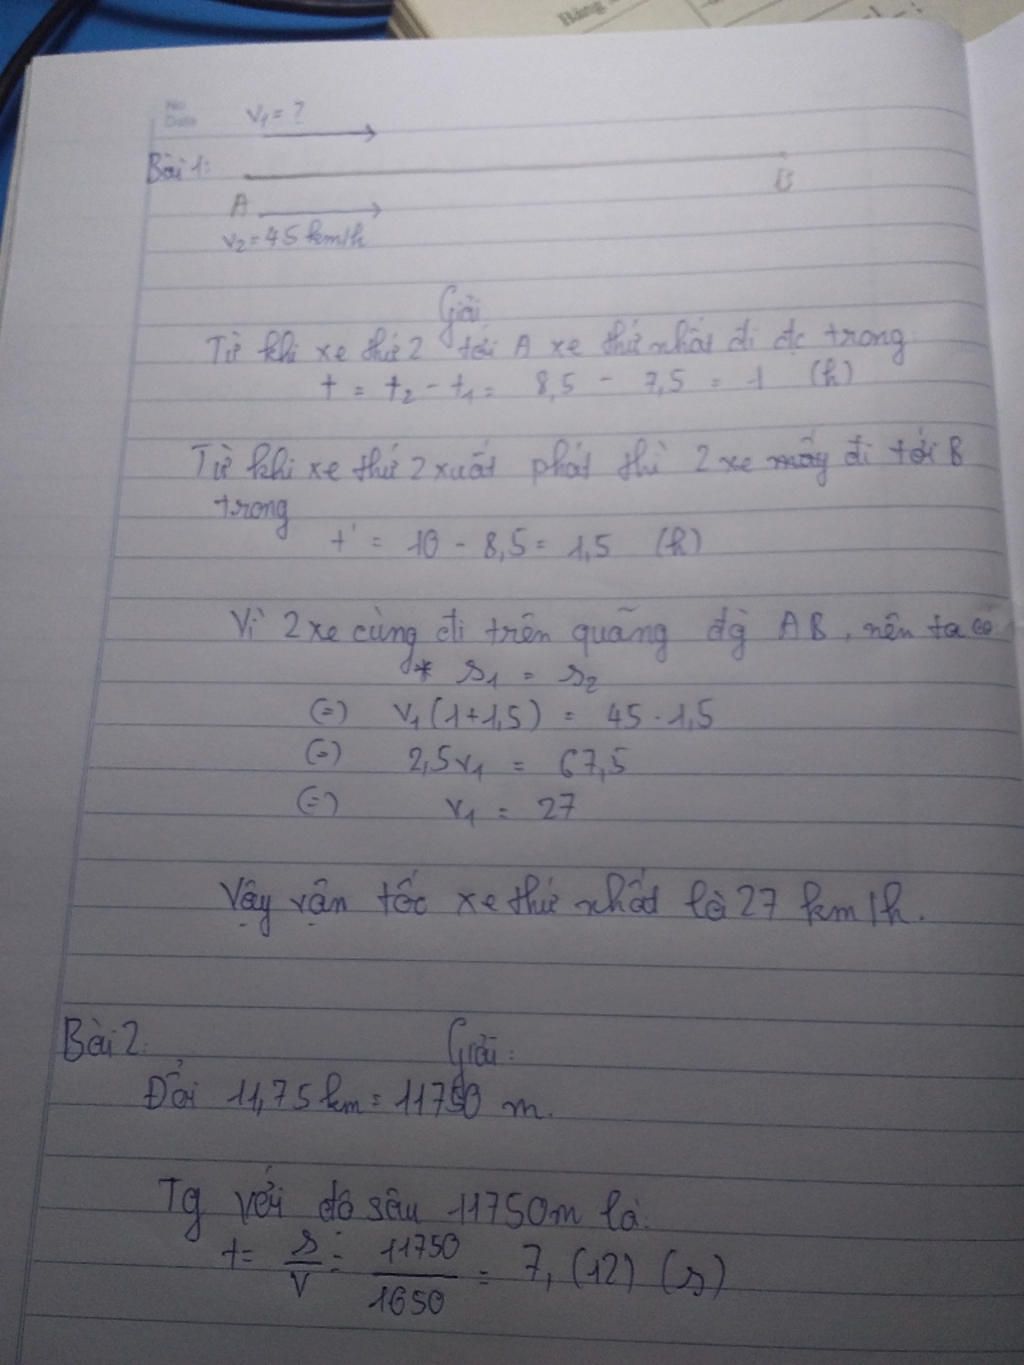 Bảng
No
Date
v₁ = ?
Bài 1:
A
B
v₂ = 45 km/h
Giải
Từ khi xe thứ 2 tới A xe thứ nhất đi đc trong:
t = t₂ - t₁ = 8,5 - 7,5 = 1 (h)
Từ khi xe thứ 2 xuất phát thì 2 xe mấy đi tới B
trong
t' = 10 - 8,5 = 1,5 (h)
Vì 2 xe cùng đi trên quãng đg AB, nên ta có
* s₁ = s₂
(=) v₁ (1+1,5) = 45 . 1,5
(=) 2,5v₁ = 67,5
(=) v₁ = 27
Vậy vận tốc xe thứ nhất là 27 km/h.
Bài 2:
Giải:
Đổi 11,75 km = 11750 m.
Tg với độ sâu 11750m là:
t = s/v = 11750/1650 = 7,(12) (s)